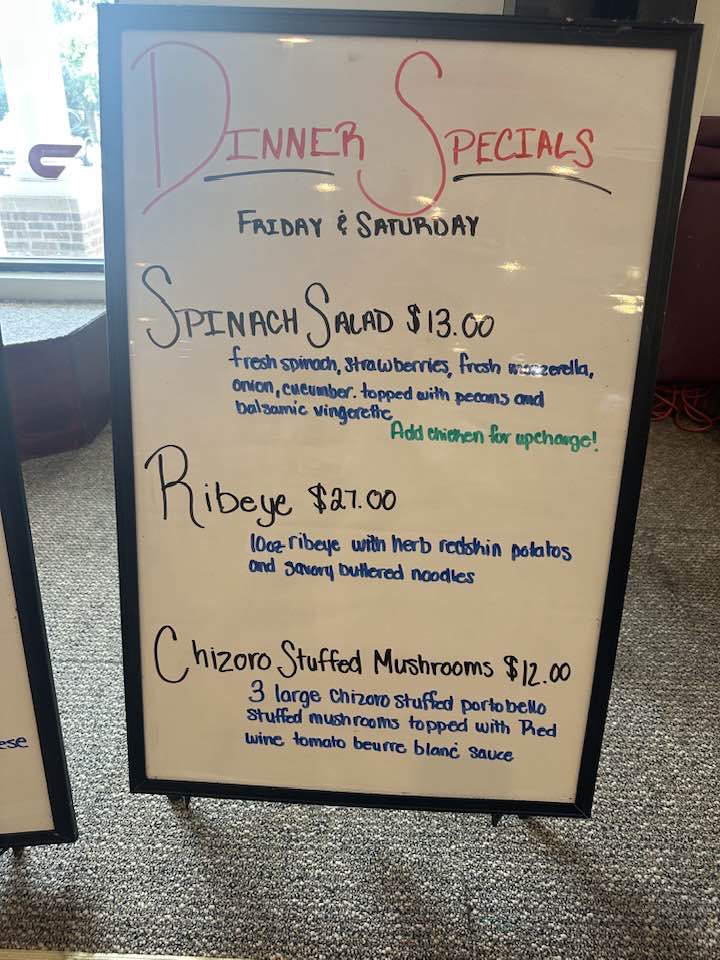 DINNER SPECIALS
FRIDAY & SATURDAY
SPINACH SALAD $13.00
fresh spinach, strawberries, fresh mozzerella,
onion, cucumber. topped with pecans and
balsamic vingerette
Add chicken for upcharge!
Ribeye $27.00
10oz ribeye with herb redskin potatos
and savory buttered noodles
Chizoro Stuffed Mushrooms $12.00
3 large Chizoro stuffed portobello
stuffed mushrooms topped with Red
wine tomato beurre blanc sauce
ese